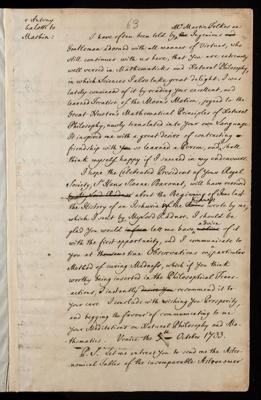 63
Mr Martin Folkes
I have often been told by that Ingenious
Gentleman adorned with all manner of Virtues, who
still continues with us here, that You are extremely
well versed in Mathematicks and Natural Philosophy,
in which Sciences I also take great delight. I was
lately convinced of it by reading your excellent, and
learned Treatise of the Moon's Motion, joyned to the
Great Newton's Mathematical Principles of Natural
Philosophy, newly translated into Your own Language.
It inspired me with a great desire of contracting
friendship with so learned a Person, and shall
think myself happy if I succeed in my endeavours.
I hope the Celebrated President of Your Royal
Society, Sr Hans Sloane Baronet, will have received
about the Beginning of
the History of an
wrote by me,
which I sent by My Lord I should be
glad You would let me have advice of it
with the first opportunity, and I communicate to
you at Observations on particular
Method of curing Madness, which if you think
worthy being inserted in the Philosophical Trans-
actions, I instantly recommend it to
your care. I conclude with wishing You Prosperity
and begging the favour of communicating to me
Your Meditations on Natural Philosophy and Ma-
thematics. Venice the October 1733.
P.S. Let me entreat You to send me the Astro-
nomical Tables of the incomparable Astronomer